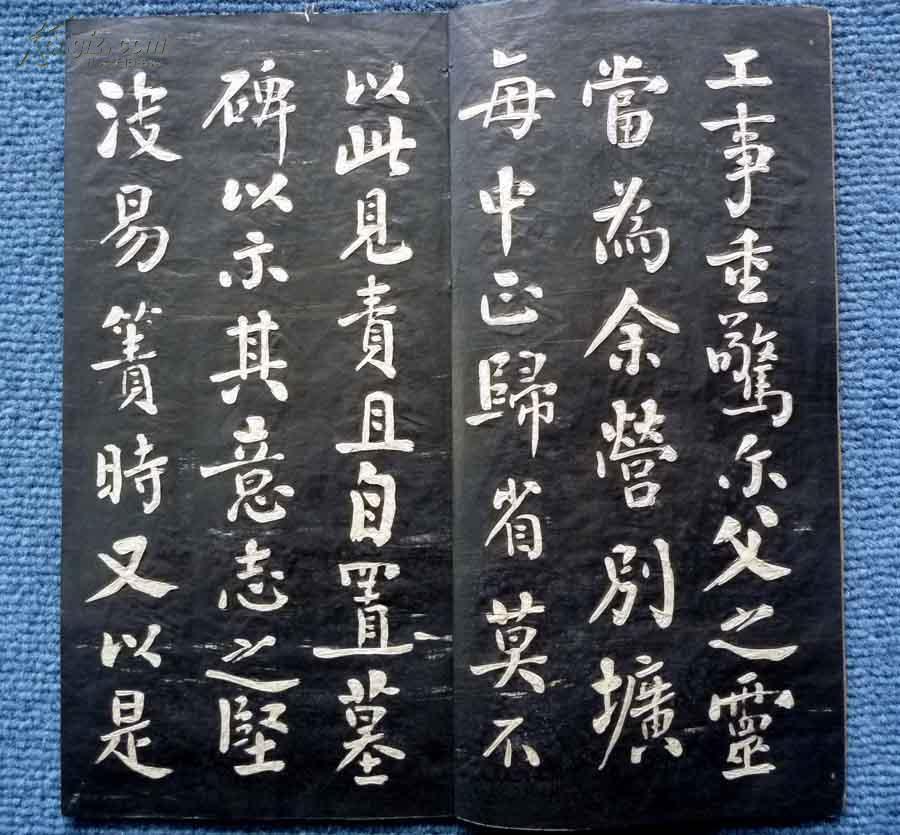 工事重驚尔父之靈
當為余營別壙
每中正歸省莫不
以此見責且自置墓
碑以示其意志之堅
沒易簀時又以是